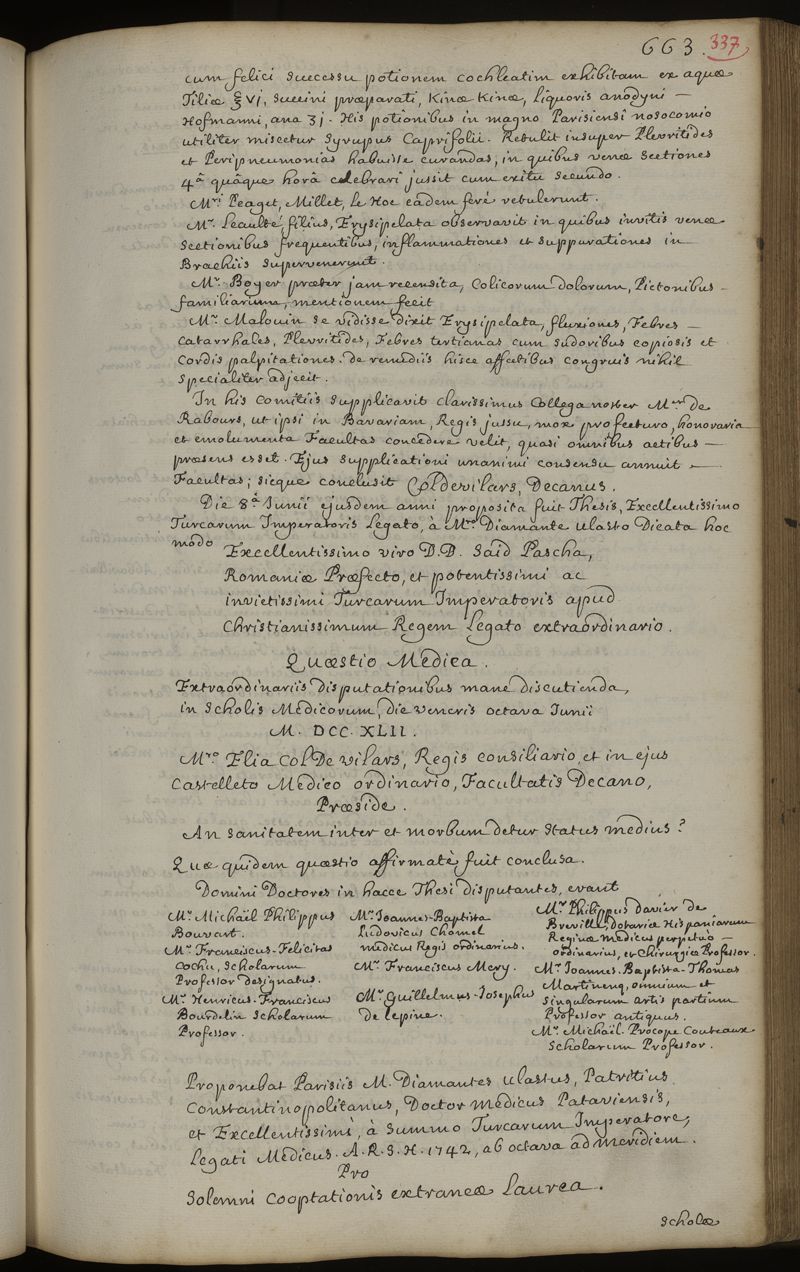 663. 337
cum felici successu potionem cochleatim exhibitam ex aquæ
Tiliæ ℥ vj, succini præparati, Kinæ Kinæ, Liquoris anodyni —
Hofmanni, ana ʒj. His potionibus in magno Parisiensi nosocomio
utiliter miscetur Syrupus Caprifolii. Retulit insuper Plevritides
et Peripneumonias habuisse curandas, in quibus venæ sectiones
4.â quâque horâ celebrari jussit cum exitu secundo.
M.ri Peaget, Millet, Le Hoc eadem ferè retulerunt.
M.r Leaulté filius, Erysipelata observavit in quibus invitis venæ
sectionibus frequentibus, inflammationes et suppurationes in
Brachiis supervenerunt.
M.r Boyer præter jam recensita, Colicorum dolorum, Pictonibus —
familiarium, mentionem fecit
M.r Malouin se vidisse dixit Erysipelata, fluxiones, Febres —
catarrhales, Plevritides, Febres tertianas cum sudoribus copiosis et
cordis palpitationes. de remediis hisce affectibus congruis nihil
specialiter adjecit.
In his comitiis supplicavit clarissimus Collega noster M.er de
Rabours, ut ipsi in Bavariam, Regis jussu, mox profecturo, honoraria
et emolumenta Facultas concedere velit, quasi omnibus actibus —
præsens esset. Ejus supplicationi unanimi consensu annuit —
Facultas; sicque conclusit Col de vilars, Decanus.
Die 8.â Junii ejusdem anni proposita fuit Thesis, Excellentissimo
Turcarum Imperatoris Legato, à M.ro Diamante Ulasto Dicata hoc
modo
Excellentissimo viro D.D. Said Pascha,
Romaniæ Præfecto, et potentissimi ac
invictissimi Turcarum Imperatoris apud
Christianissimum Regem Legato extraordinario.
Quæstio Medica.
Extraordinariis disputationibus mane discutienda,
in scholis Medicorum, die veneris octava Junii
M. DCC. XLII.
M.ro Elia Col De vilars, Regis consiliario, et in ejus
Castelleto Medico ordinario, Facultatis Decano,
Præside.
An sanitatem inter et morbum detur status medius?
Quæ quidem quæstio affirmatè fuit conclusa.
Domini Doctores in hacce Thesi disputantes, erant
M.r Michaël Philippus
Bouvart.
M.r Franciscus-Felicitas
Cochu, scholarum
Professor designatus.
M.r Henricus-Franciscus
Bourdelin scholarum
Professor.
M.r Joannes-Baptista
Ludovicus Chomel
medicus Regis ordinarius.
M.r Franciscus Mery.
M.r Guillelmus-Josephus
De l'epine.
M.r Philippus Davier de
Breville, dotariæ Hispaniarum
Reginæ medicus perpetuò —
ordinarius, et Chirurgiæ Professor.
M.r Joannes-Baptista-Thomas
Martinenq, omnium et
singularum artis partium
Professor antiquus.
M.r Michaël-Procope Couteaux
scholarum Professor.
Proponebat Parisiis M. Diamantes Ulastus, Patritius
Constantinopolitanus, Doctor medicus Pataviensis,
et Excellentissimi, à summo Turcarum Imperatore,
Legati Medicus. A.R.S.H. 1742, ab octava ad meridiem.
Pro
Solemni cooptationis extraneæ Laurea.
Scholæ